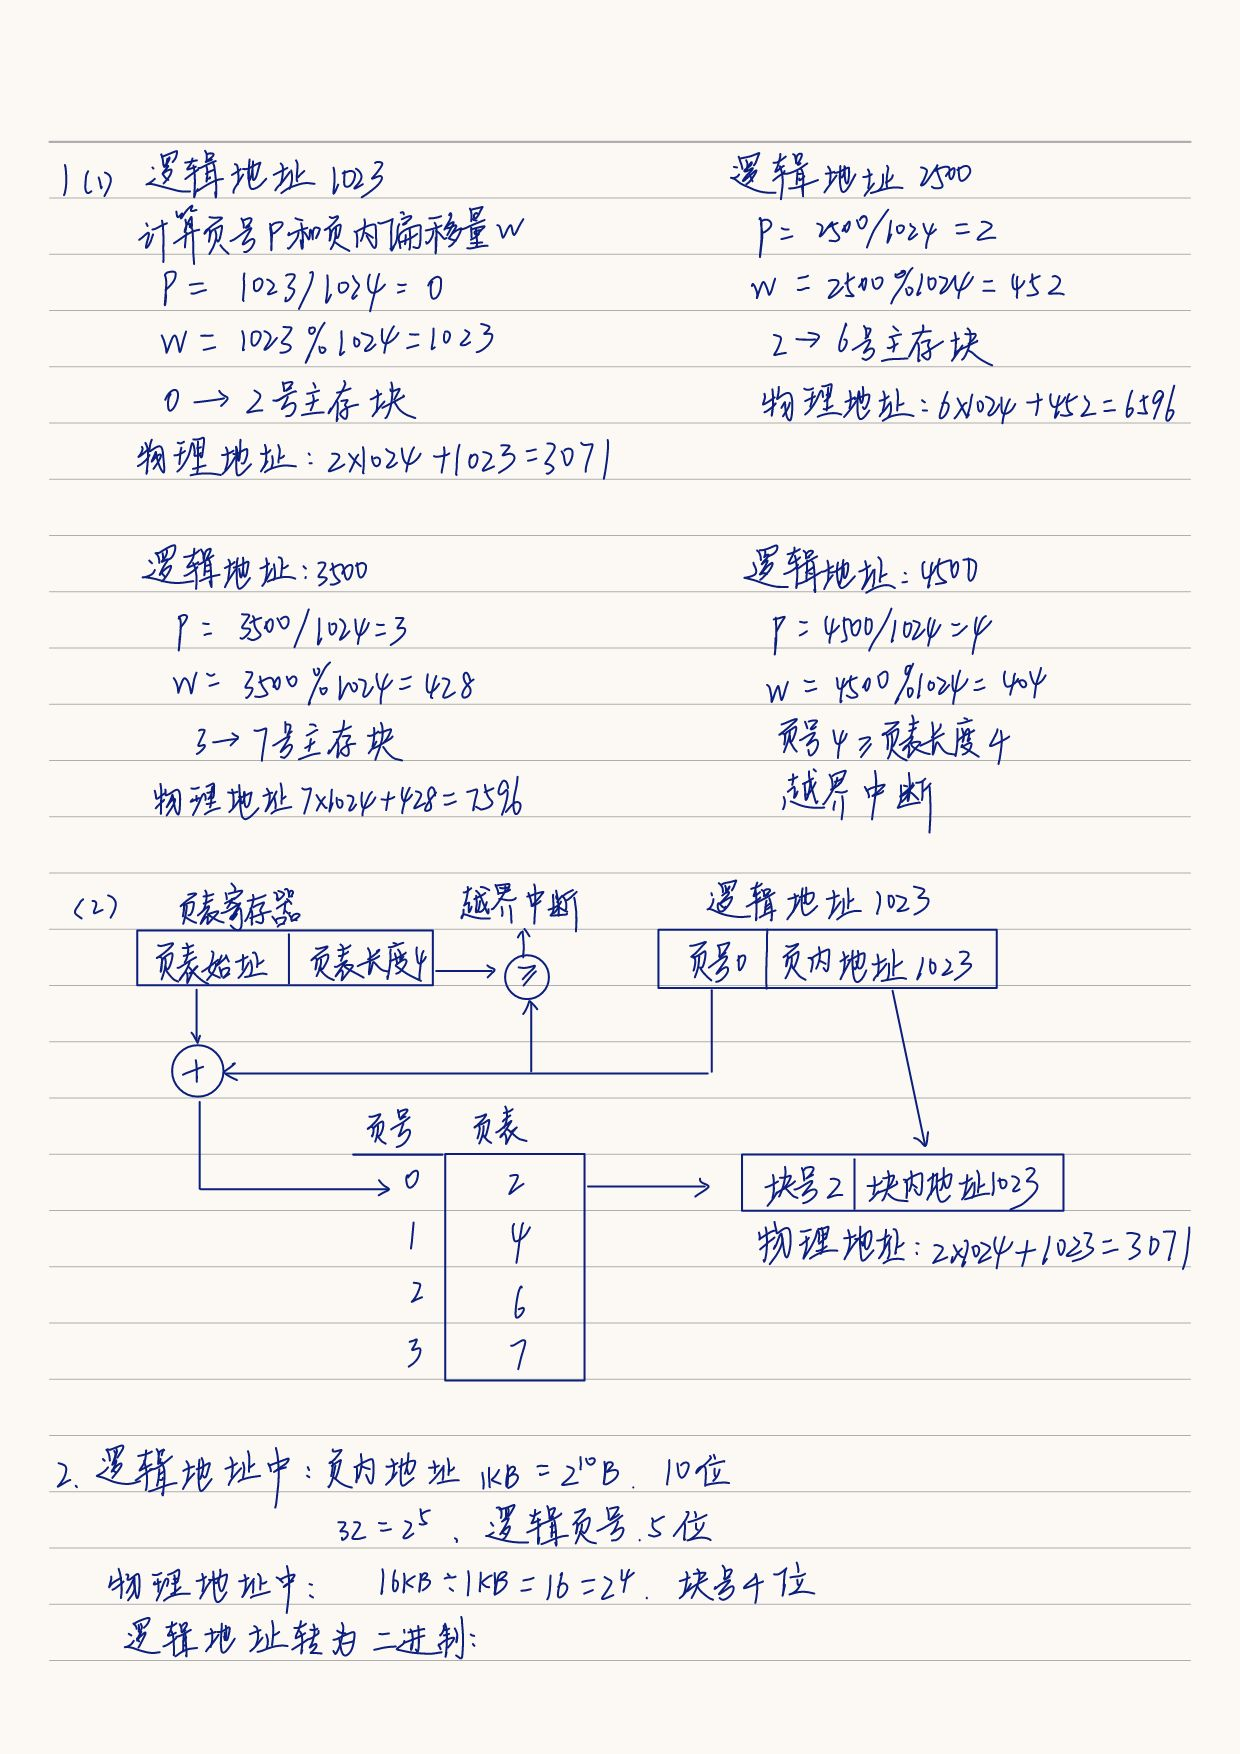 1 (1) 逻辑地址 1023
计算页号P和页内偏移量W
P = 1023/1024 = 0
W = 1023%1024 = 1023
0 → 2号主存块
物理地址: 2×1024+1023=3071
逻辑地址 2500
P = 2500/1024 = 2
W = 2500%1024 = 452
2 → 6号主存块
物理地址: 6×1024+452=6596
逻辑地址: 3500
P = 3500/1024 = 3
W = 3500%1024 = 428
3 → 7号主存块
物理地址 7×1024+428=7596
逻辑地址: 4500
P = 4500/1024 = 4
W = 4500%1024 = 404
页号4 ≥ 页表长度4
越界中断
(2) 页表寄存器
越界中断
逻辑地址 1023
页表始址 页表长度4
≥
页号0 页内地址 1023
+
页号 页表
0 2
1 4
2 6
3 7
块号2 块内地址1023
物理地址: 2×1024+1023=3071
2. 逻辑地址中: 页内地址 1KB = 2¹⁰B. 10位
32 = 2⁵ 、逻辑页号.5位
物理地址中: 16KB÷1KB=16=2⁴. 块号4位
逻辑地址转为二进制: